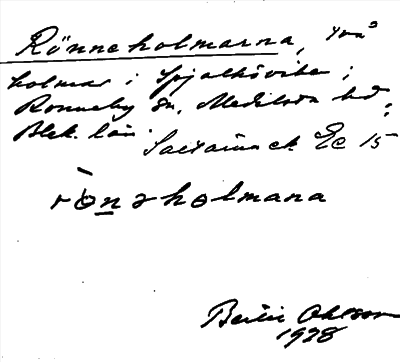 Rönneholmarna, två
holmar i Spjälköviken i
Ronneby sn, Medelsta hd,
Blek. län. ek. Ec 15
rònəholmana
Bertil Ohlsson
1938